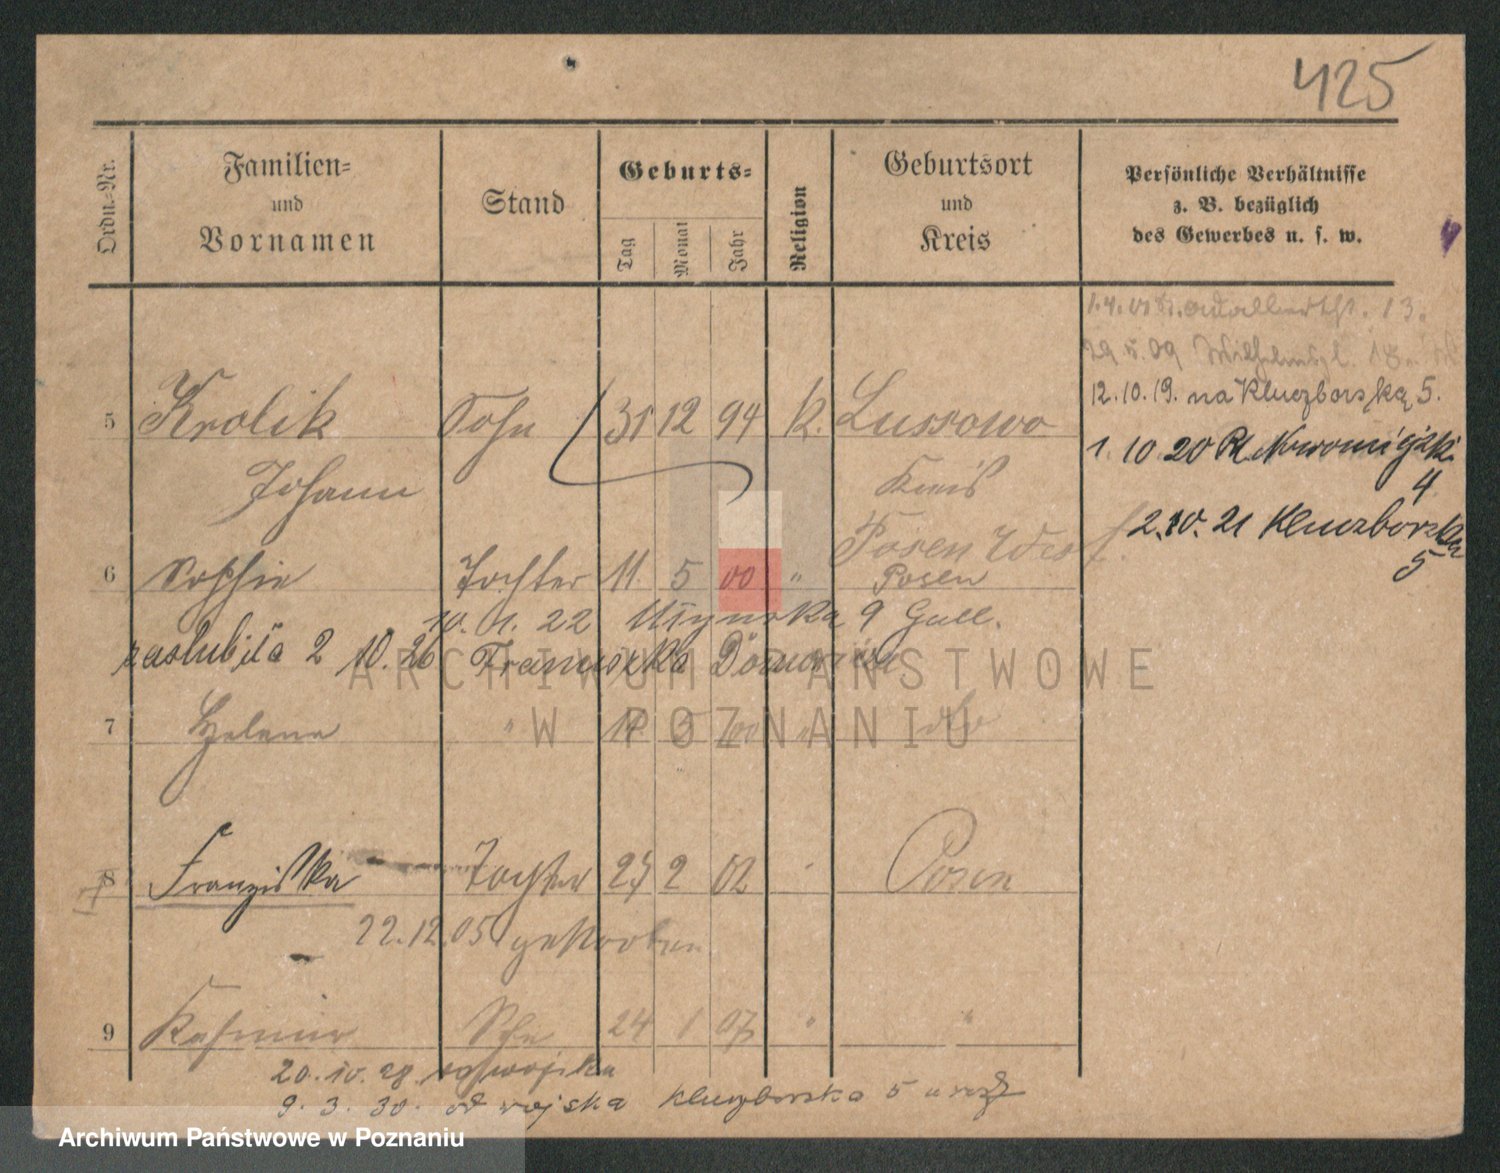 425
Ordn.-Nr.
Familien-
und
Vornamen
Stand
Geburts-
Tag
Monat
Jahr
Religion
Geburtsort
und
Kreis
Persönliche Verhältnisse
z. B. bezüglich
des Gewerbes u. s. w.
13.
29 5. 09 Wilhelmspl. 18.
12.10.19. na Kluczborską 5.
1. 10 20 Pl. Nowomiejski
4
2.10.21 Kluczborska
5
5 Krolik Sohn 31 12 94 k. Lussowo
Johann Kreis
Posen West
6 Sophie Tochter 11. 5 00 " Posen
10. 1. 22 9 Gall.
zaślubiła 2 10. 26 Franciszka
ARCHIWUM PAŃSTWOWE
7 Helene " 5 00 " do
W POZNANIU
8 Franziska Tochter 2 02 Posen
22.12.05 gestorben
9 Kasimir Sohn 24 1 07 " "
20. 10. 28 do wojska
9. 3. 30. od wojska Kluczborska 5 u
Archiwum Państwowe w Poznaniu